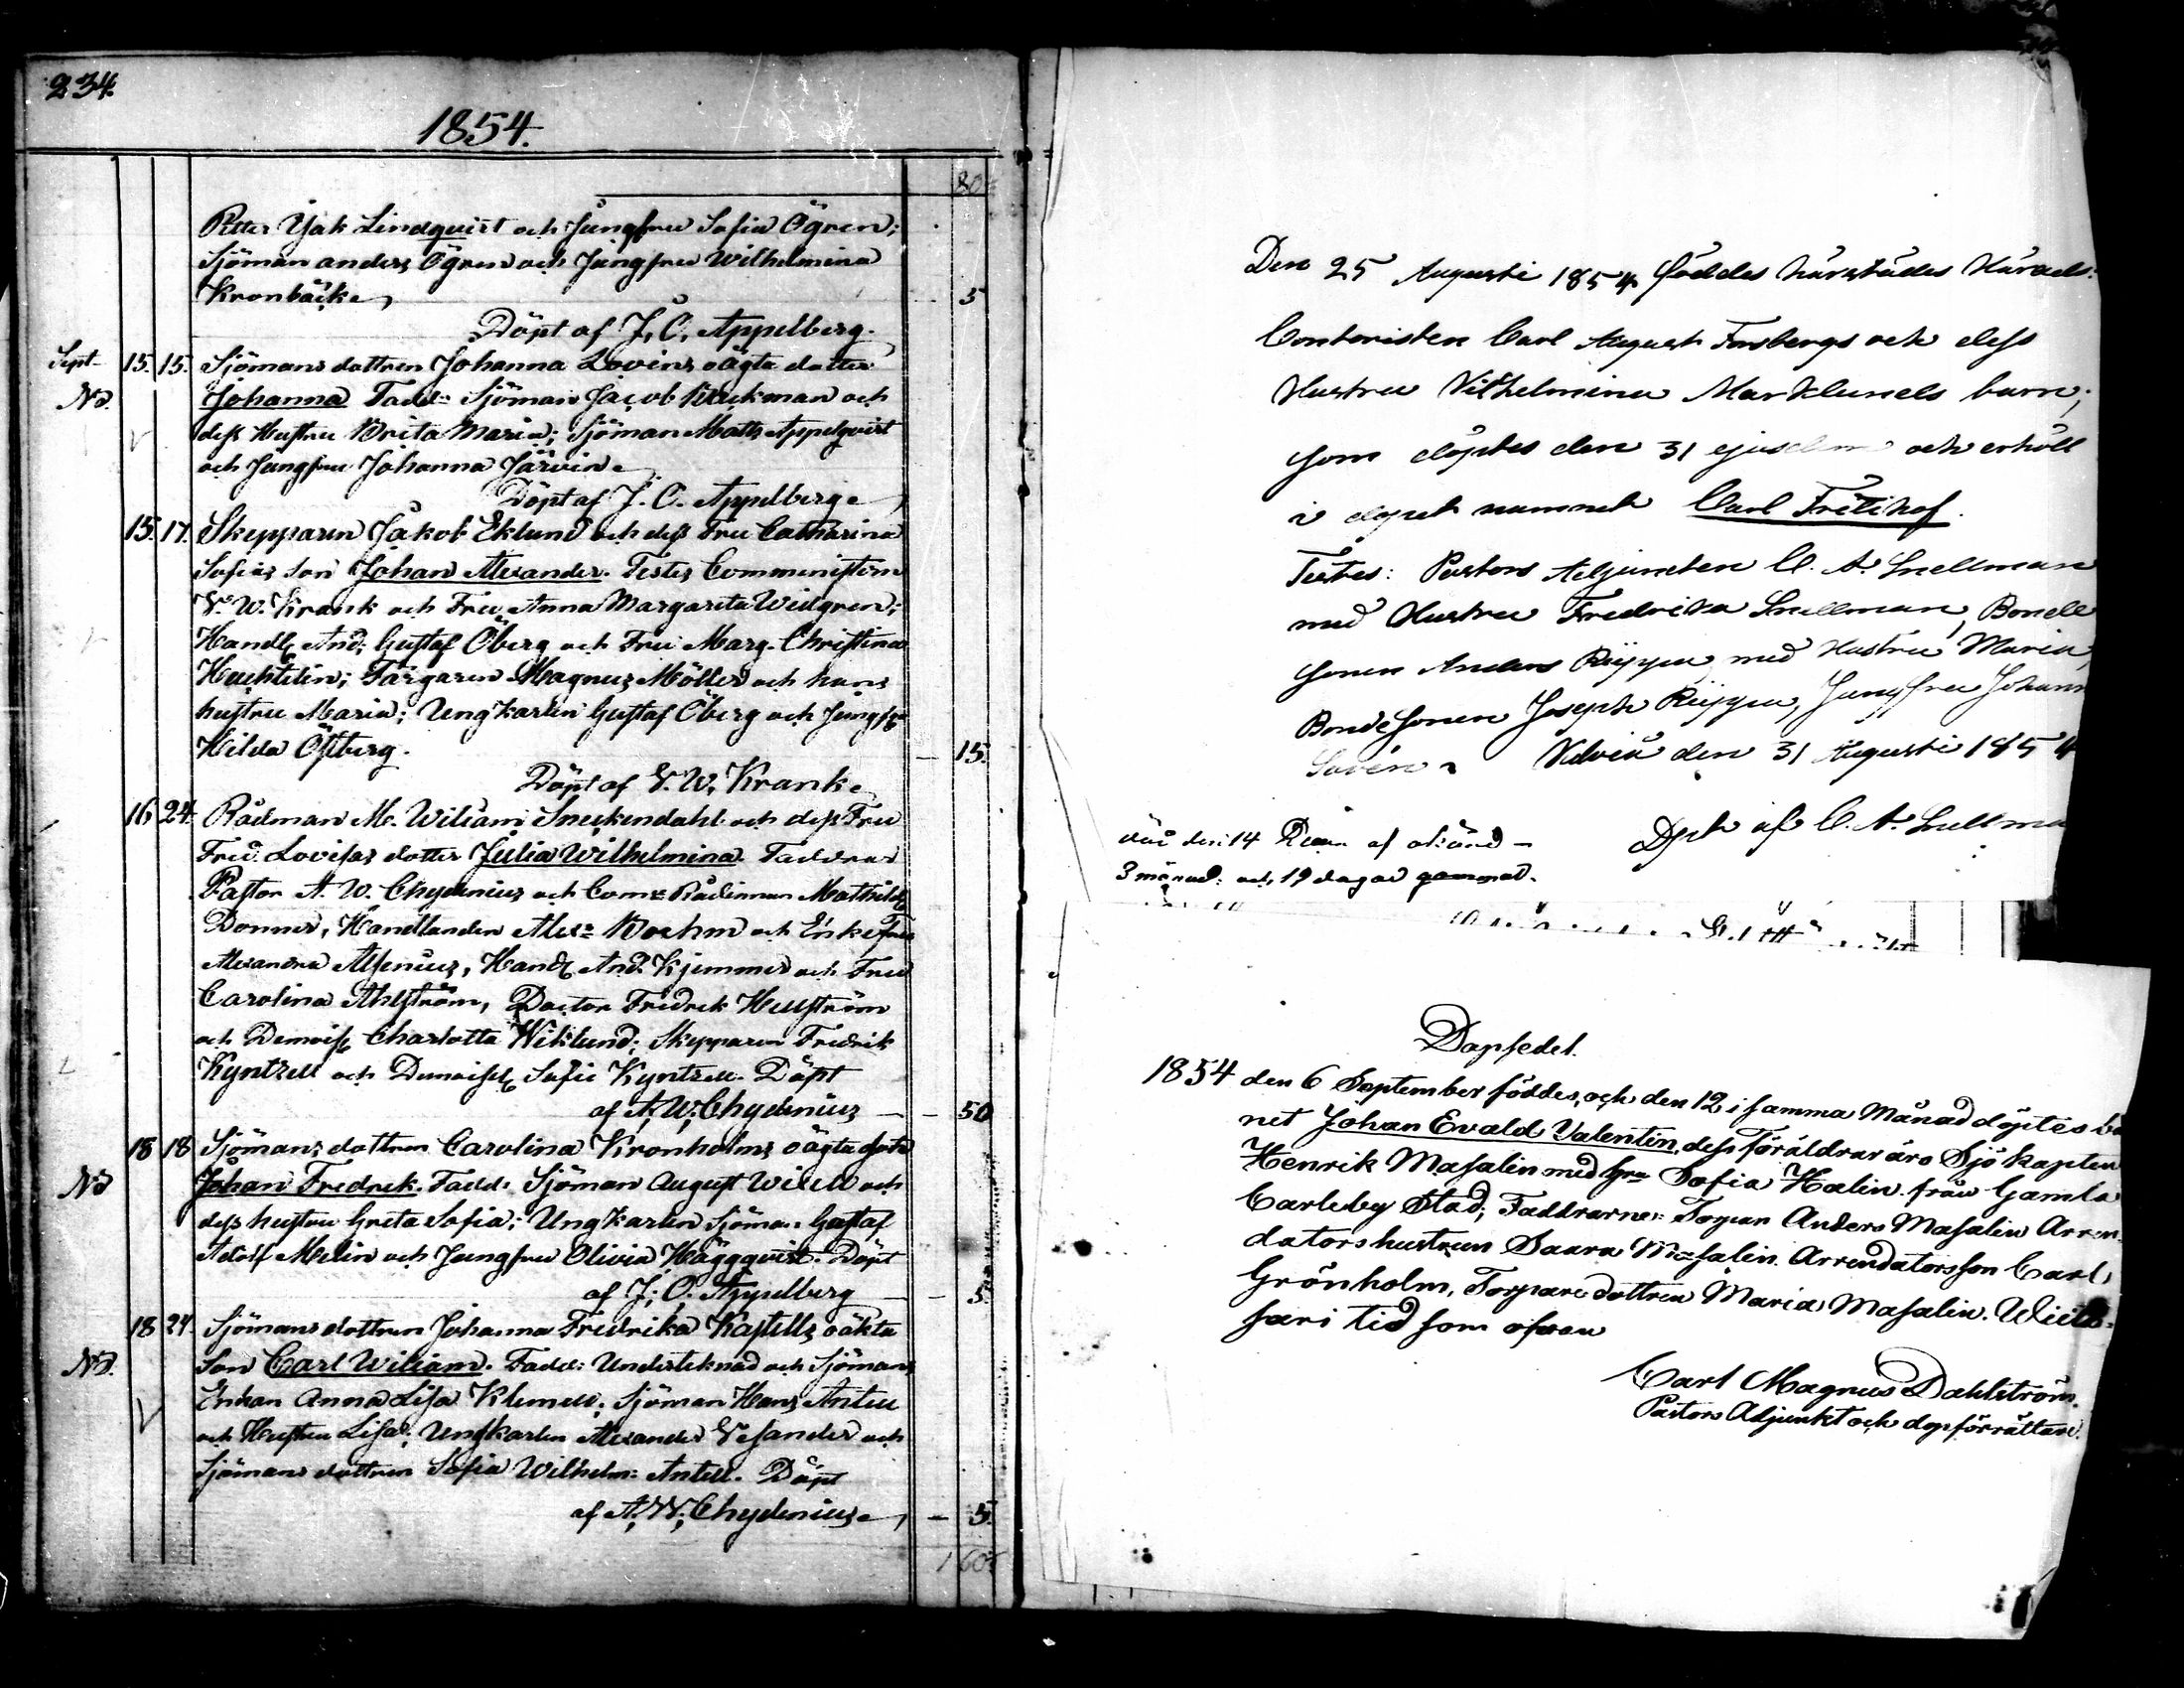 234.
1854.
80
Petter Isak Lindqvist och Jungfru Sofia Ögren;
Sjöman anders Ögren och Jungfru Wilhelmina
Kronbäck 5
Döpt af J. O. Appelberg.
Sept. 15. 15. Sjömans dottren Johanna Lovins oägta dotter
No. Johanna Fadd: Sjöman Jacob Brickman och
dess Hustru Brita Maria; Sjöman Matts Appelqvist
och Jungfru Johanna Järvin
Döpt af J. O. Appelberg
15. 17. Skepparen Jakob Eklund och dess Fru Catharina
Sofias son Johan Alexander. Testes Comministern
V. W. Krank och Fru Anna Margareta Widgren;
Handl And: Gustaf Öberg och Fru Marg. Christina
Färgaren Magnus Möller och hans
hustru Maria; Ungkarlen Gustaf Öberg och Jungfr
Hilda Östberg. — 15.
Döpt af V. W. Krank
16 24. Rådman M. Wiliam Sneckendahl och dess Fru
Fred. Lovisas dotter Julia Wilhelmina. Faddrar
Pastor A. W. Chydenius och Com: Rådinnan Mathilda
Donner, Handlanden Alex: Boehm och Enkefru
Alexandra Alfenius, Handl And. Kjemmer och Fru
Carolina Ahlström, Doctor Fredrik Hellström
och Demoisl Charlotta Wiklund; Skepparen Fredrik
Kyntzell och Demoisell Sofie Kyntzell. Döpt
af A. W. Chydenius — — 50
18 18 Sjömans dottren Carolina Kronholms oägta son
No Johan Fredrik. Fadd: Sjöman August Wikell och
dess hustru Greta Sofia; Ungkarlen Sjöman Gustaf
Adolf Melin och Jungfru Olivia Häggqvist. Döpt
af J. O. Appelberg — — 5.
18 24. Sjömans dottren Johanna Fredrika Kastells oäkta
No. son Carl Wiliam. Fadd: Underteknad och Sjömans
Enkan Anna Lisa Klemets. Sjöman Hans Antell
och Hustru Lisa; Ungkarlen Alexander Vesander och
Sjömans dottren Sofia Wilhelm: Antell. Döpt
af A. W. Chydenius — 5.
160
Den 25 Augusti 1854 föddes härstädes Härads-
Contoristen Carl August Forsbergs och dess
Hustru Vilhelmina Marklunds barn;
som döptes den 31 ejusdem och erhöll
i dopet namnet Carl Fritihof.
Testes: Pastors Adjuncten C. A. Snellman
med Hustru Fredrika Snellman, Bonde
sonen Anders Rüppa med Hustru Maria,
BondeSonen Joseph Rüppa, Jungfru Johann
Savén. den 31 Augusti 1854
Döpt af C. A. Snellma
död den 14 af
3 månad: och 19 dagar gammal.
Dopsedel.
1854 den 6 September föddes, och den 12 i samma Månad döptes ba
net Johan Evald Valentin, dess föräldrar äro Sjökapten
Henrik Masalin med hu Sofia Halin från Gamla
Carleby Stad; Faddrarne: Torpar Anders Masalin Arren-
datorshustrun Saara Masalin. Arrendatorsson Carl
Grönholm, Torparedottren Maria Masalin. Wiita-
sari tid som ofvan
Carl Magnus Dahlström.
Pastors Adjunkt och dopförrättare.